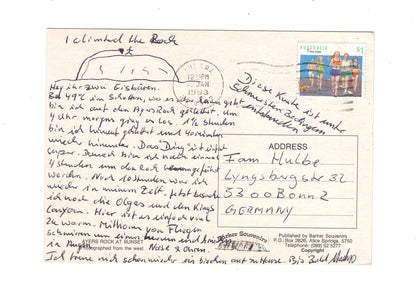 I climbed the Rock
Hey ihr zwei Eisbären.
Bei 49°C im Schatten, wo es hier keinen gibt
bin ich auf den Ayers Rock geklettert. Um
4 Uhr morgens ging es los. 1½ Stunden
bin ich hinauf geklettert und 40 Minuten
wieder hinunter. Das Ding ist einfach
super. Danach bin ich noch einmal
4 Stunden um den Rock herum geführt
worden. Nach 10 Stunden war ich
wieder in meinem Zelt. Jetzt besuche
ich noch die Olgas und den Kings
Canyon. Hier ist es einfach viel
zu warm. Millionen von Fliegen
schwirren um einen herum und
in Augen Nase & Ohren.
Ich freue mich schon wieder ein bischen auf zuHause. Bis Bald
Diese Karte ist unter
Schweissausbrüchen
entstanden
12 PM
JAN
1993
AUSTRALIA
$1
ADDRESS
Fam Hulbe
Lyngsbergstr 32
5300 Bonn 2
GERMANY
AYERS ROCK AT SUNSET
Photographed from the west.
Barker Souvenirs
Published by Barker Souvenirs
P.O. Box 2626, Alice Springs, 5750
Telephone: (089) 52 5277
Copyright